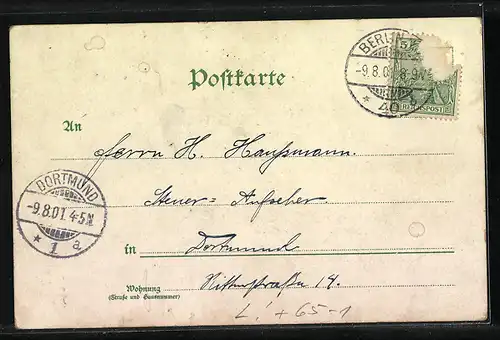 BERLIN
-9.8.01.8-9V.
* 40
5
REICHSPOST
Postkarte
An
Herrn H. Haussmann.
DORTMUND
-9.8.01.4-5N
* 1 a
Steuer-Aufseher
in Dortmund
Wohnung
(Straße und Hausnummer)
straße 14.
L. +65-1